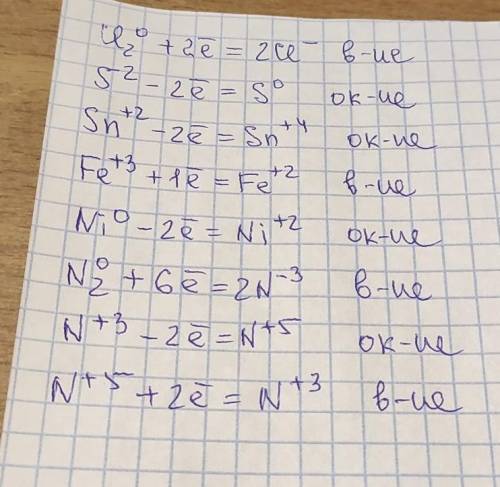 Cl₂⁰ + 2ē = 2Cl⁻ в-ие
S⁻² - 2ē = S⁰ ок-ие
Sn⁺² - 2ē = Sn⁺⁴ ок-ие
Fe⁺³ + 1ē = Fe⁺² в-ие
Ni⁰ - 2ē = Ni⁺² ок-ие
N₂⁰ + 6ē = 2N⁻³ в-ие
N⁺³ - 2ē = N⁺⁵ ок-ие
N⁺⁵ + 2ē = N⁺³ в-ие